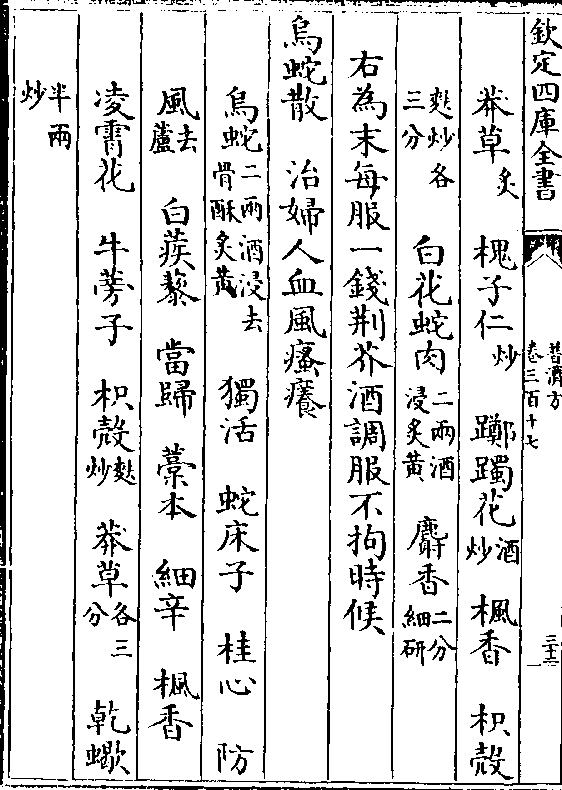 欽定四庫全書
普濟方
卷三百十七
三十三
莽草炙　槐子仁炒　躑躅花酒炒　楓香　枳殼
麩炒各三分　白花蛇肉二兩酒浸炙黃　麝香二分細研
右為末每服一錢荆芥酒調服不拘時候
烏蛇散　治婦人血風瘙癢
烏蛇二兩酒浸去骨酥炙黄　獨活　蛇床子　桂心　防
風去蘆　白蒺藜　當歸　藁本　細辛　楓香
凌霄花　牛蒡子　枳殼麩炒　莽草各三分　乾蠍
半兩炒